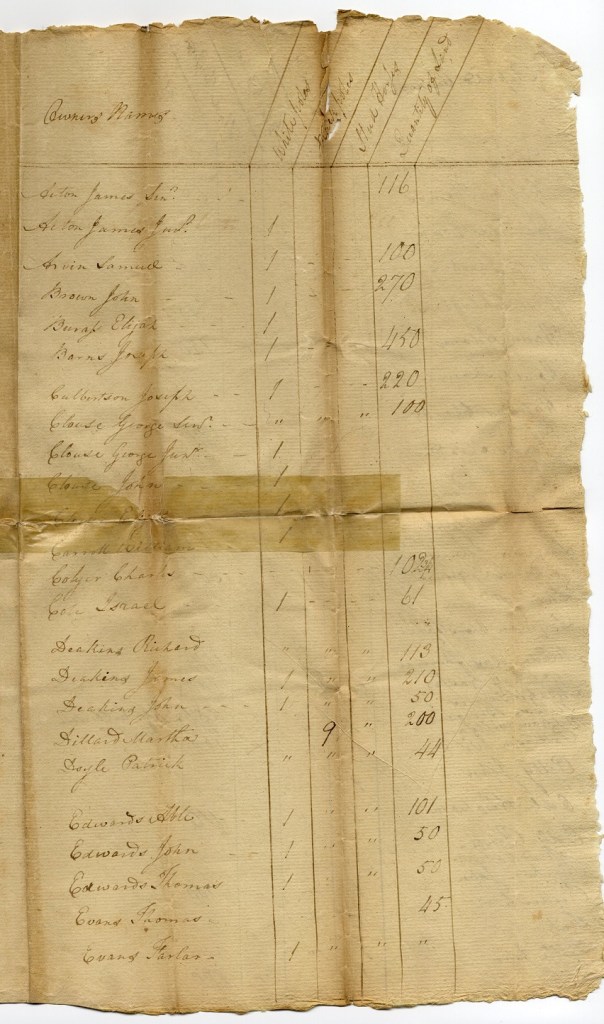 Owners Names White Poles Poles Stud Quantity of Land
Acton James Senr. 116
Acton James Junr. 1
Arvin Samuel 1 100
Brown John 1 270
Burass Elijah 1
Barns Joseph 1 450
Culbertson Joseph 1 220
Clouse George Senr. " " " 100
Clouse George Junr. 1
Clouse John 1
1
Carrick 1
Charls
Cole Israel 1 61
Deakins Richard " " " 113
Deakins James 1 " " 210
Deakins John 1 " " 50
Dillard Martha 9 " 200
Doyle Patrick " " " 44
Edwards Able 1 " " 101
Edwards John 1 " " 50
Edwards Thomas 1 " " 50
Evans Thomas 45
Evans 1 " " "